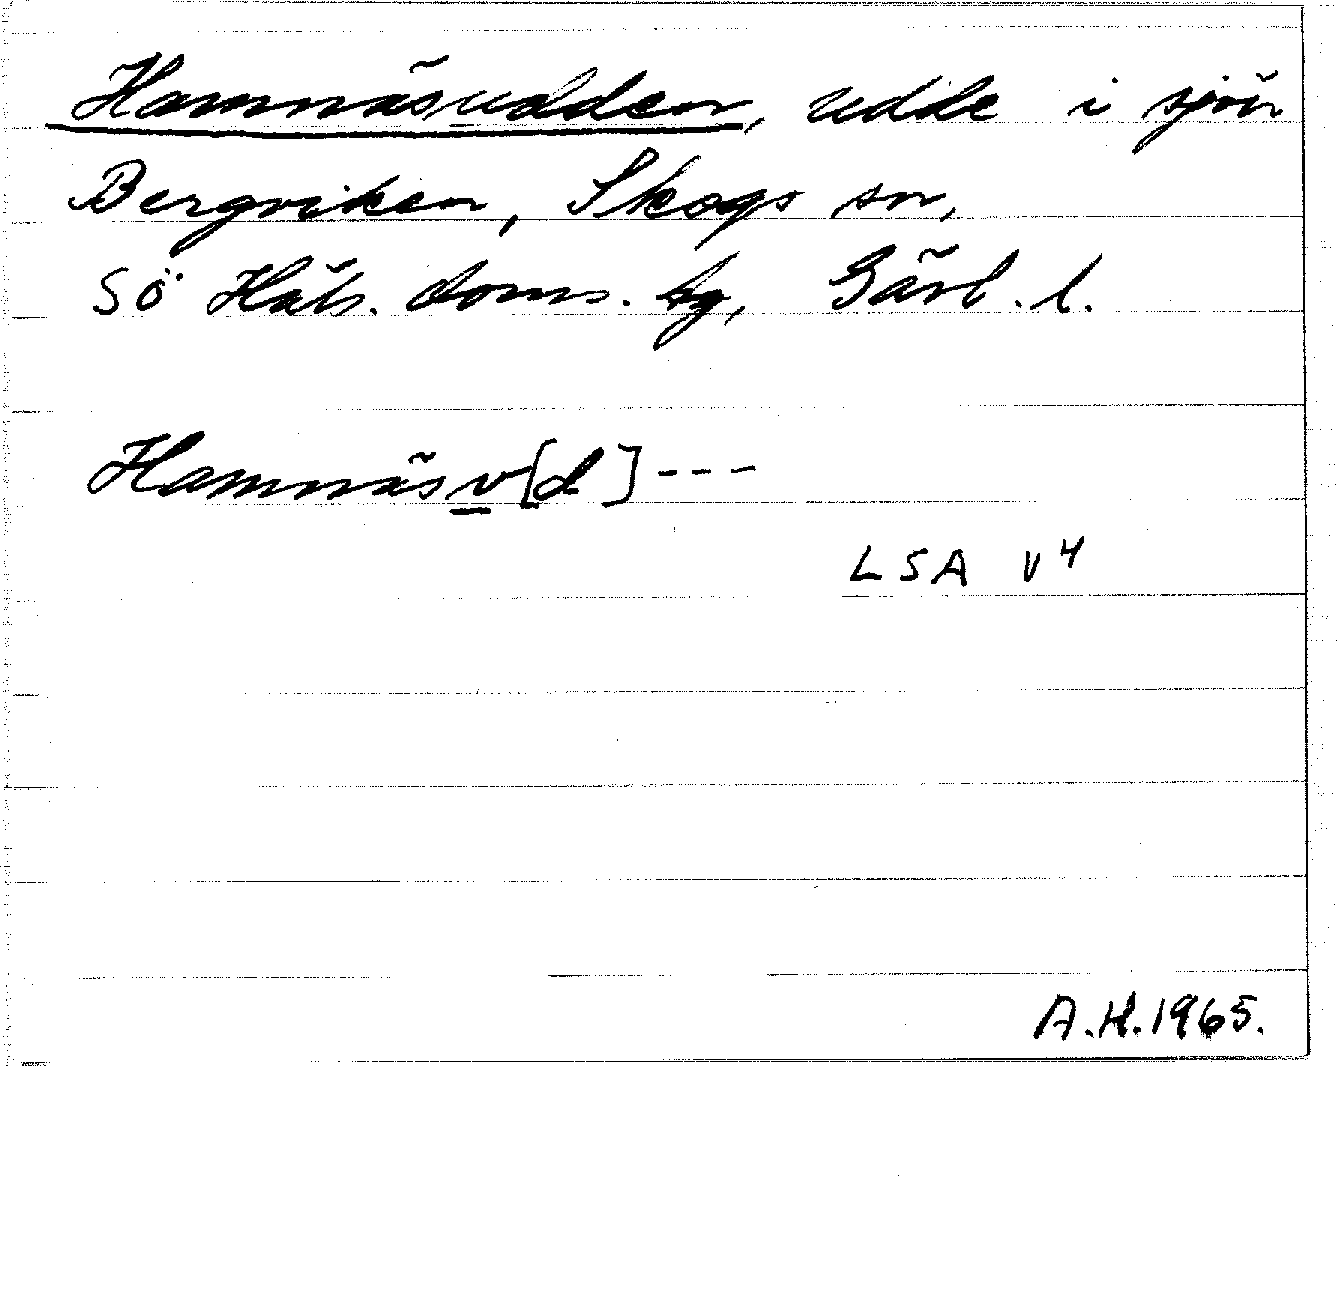 Hamnäsudden, udde i sjön
Bergviken, Skogs sn,
SÖ Häls. doms. hg, Gävl. l.
Hamnäsv[d]---
LSA V4
A.H.1965.